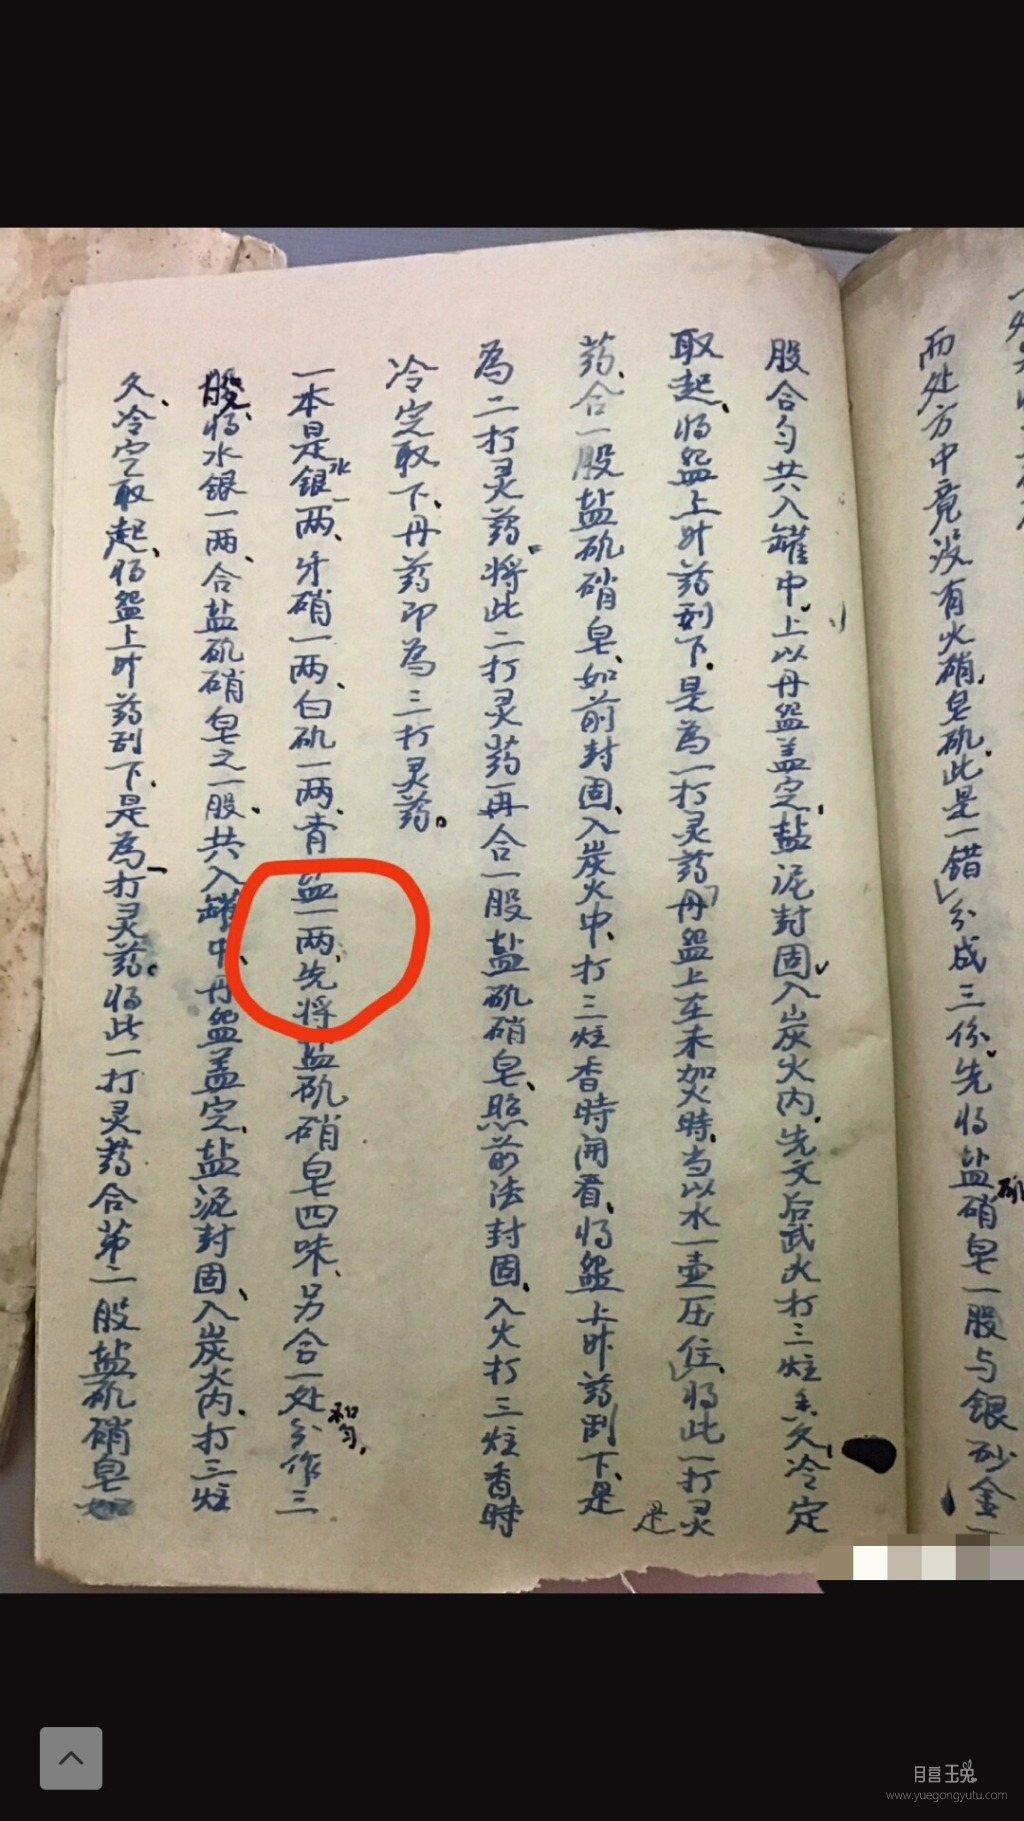 而处方中竟没有火硝、皂矾、此是一错」分成三份。先将盐矾硝皂一股与银砂金一
股合匀共入罐中、上以丹盌盖定、盐泥封固、入炭火内、先文后武火打三炷香久、冷定
取起、将盌上升药刮下、是为一打灵药「丹盌上在未加火時、当以水一壶压住」将此一打灵
药、合一股盐矾硝皂、如前封固、入炭火中、打三炷香時闹看、将盌上升药刮下、是
為二打灵药。将此二打灵药再合一股盐矾硝皂、照前法封固、入火打三炷香時
冷定取下、丹药即為三打灵药。
一本是水银一两、牙硝一两、白矾一两、青盐一两、先将盐矾硝皂四味、另合一处和匀、分作三
股、将水银一两、合盐矾硝皂之一股、共入罐中、丹盌盖定、盐泥封固、入炭火内、打三炷
久、冷定取起、将盌上升药刮下、是為一打灵药。将此一打灵药合第二股盐矾硝皂如
是
月宫玉兔
www.yuegongyutu.com